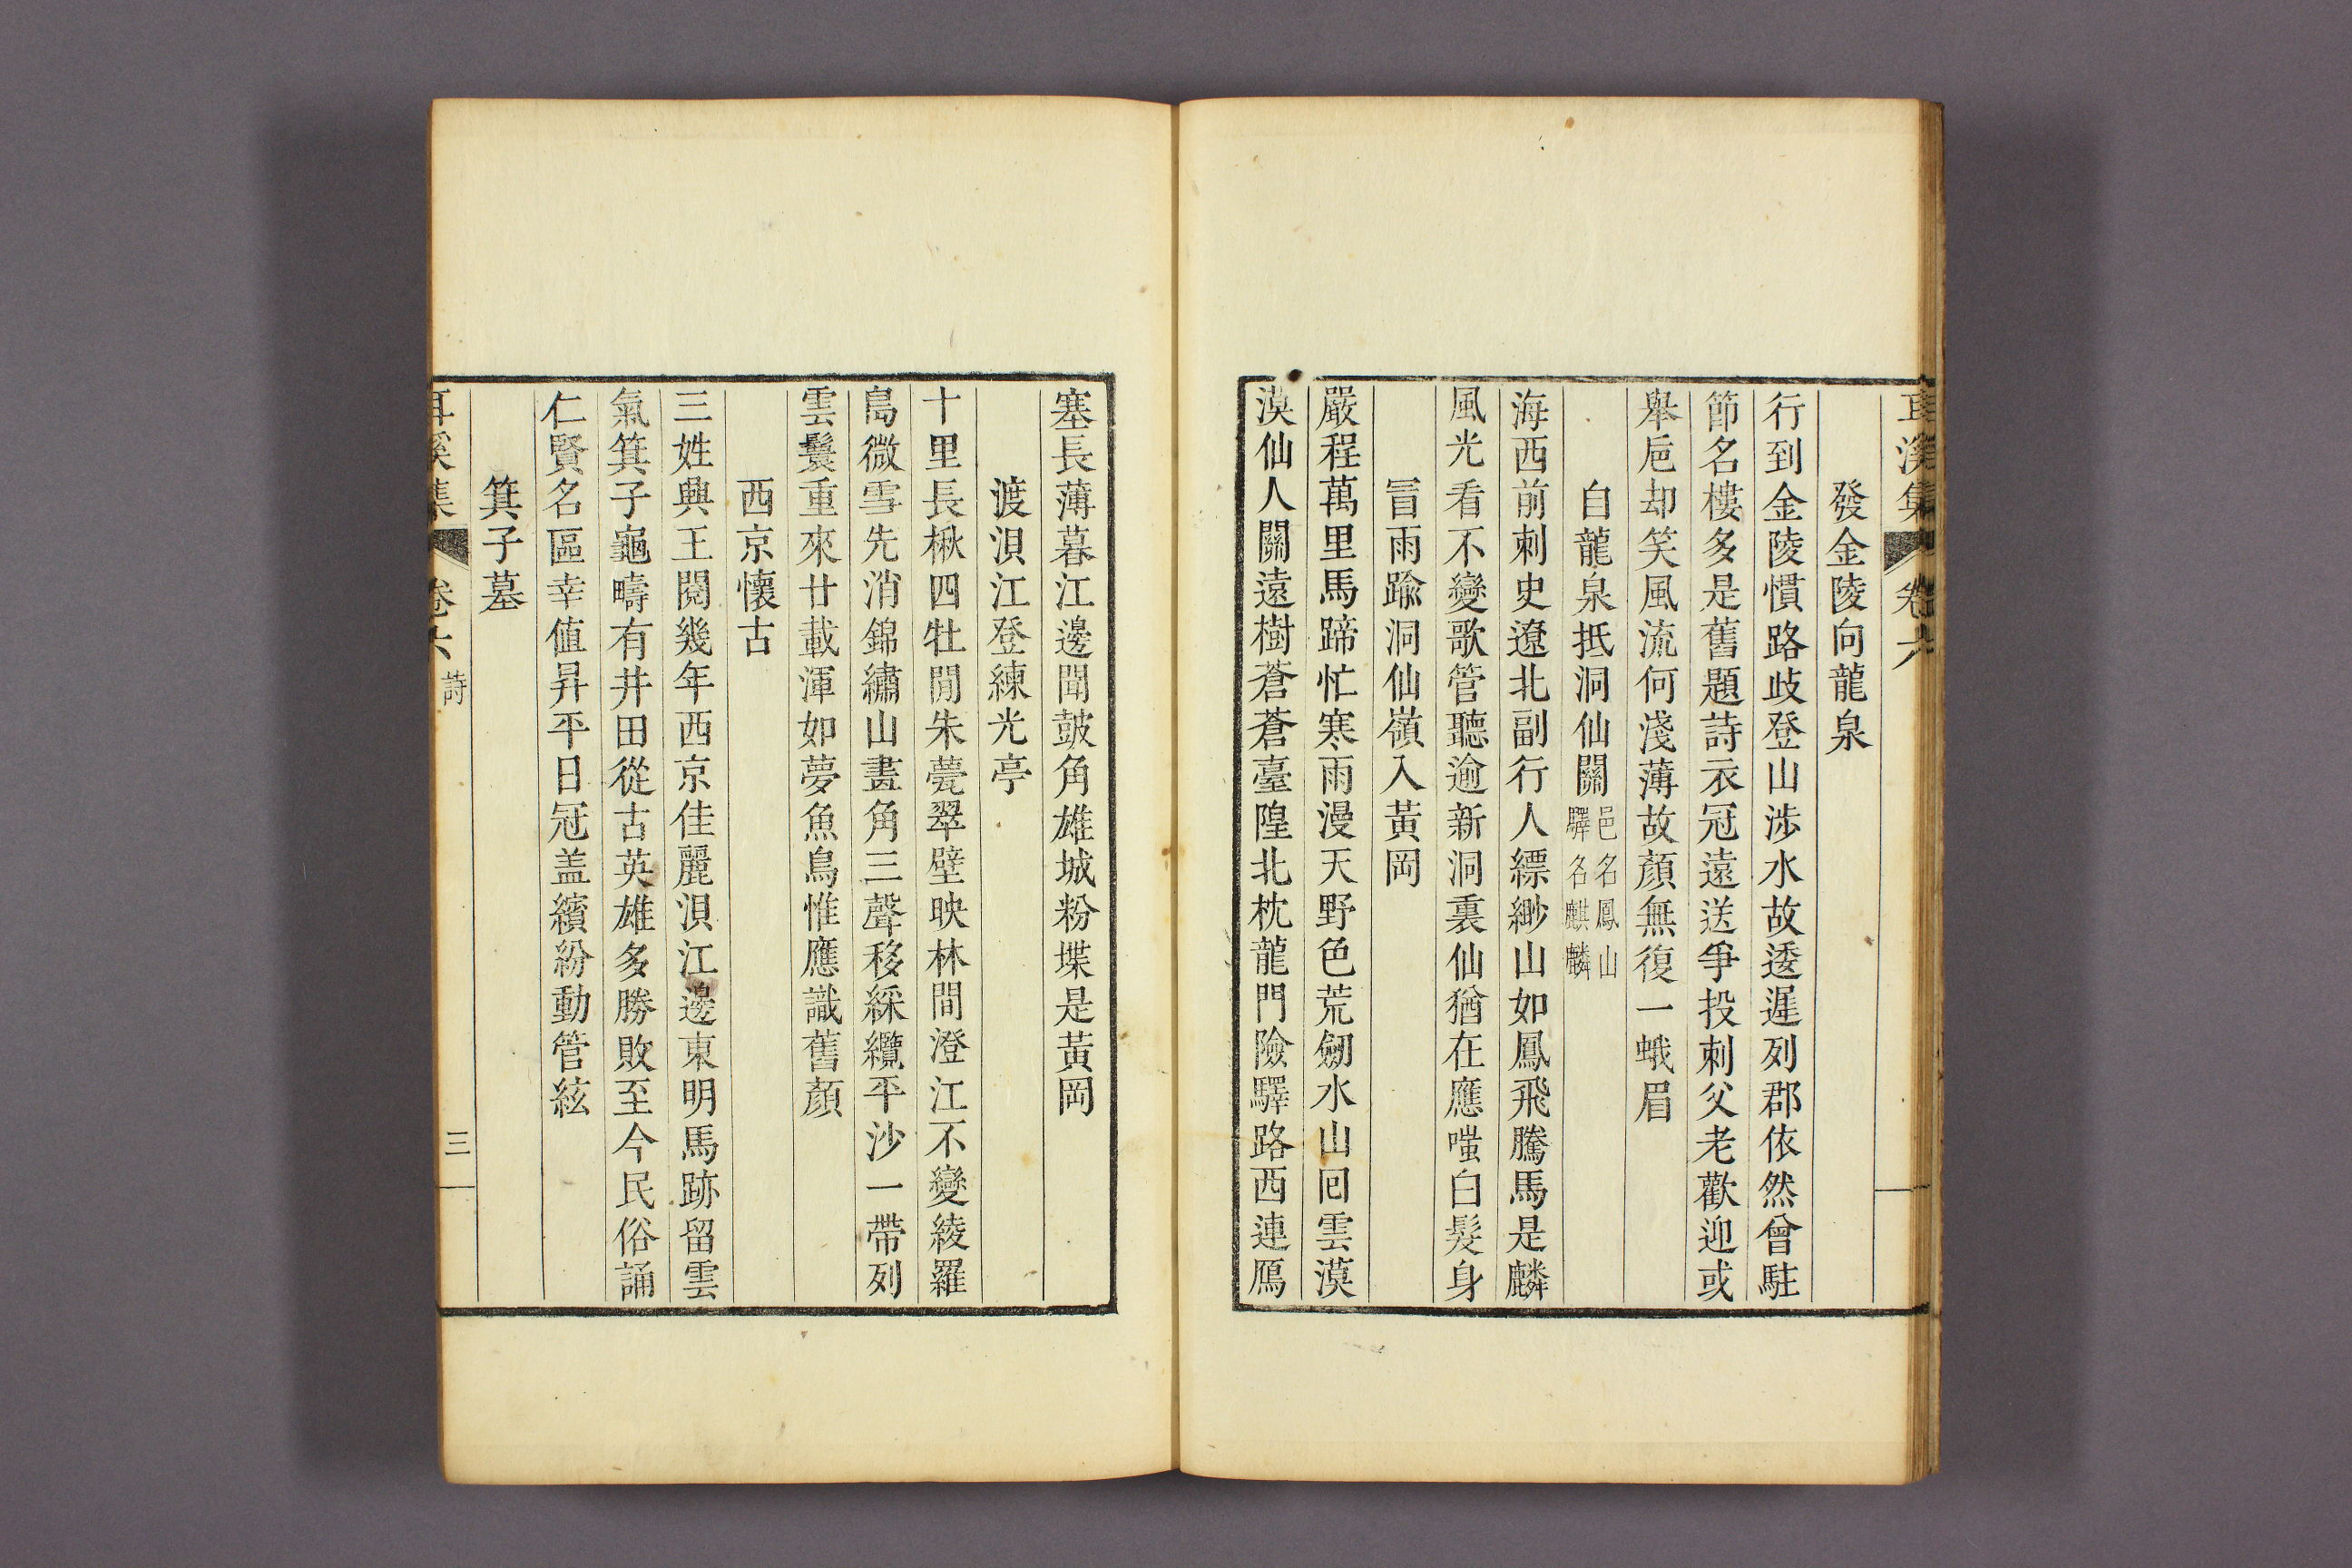 耳溪集 卷六
發金陵向龍泉
行到金陵慣路歧登山涉水故逶遲列郡依然曾駐
節名樓多是舊題詩衣冠遠送爭投刺父老歡迎或
舉巵却笑風流何淺薄故顏無復一蛾眉
自龍泉抵洞仙關邑名鳳山驛名麒麟
海西前刺史遼北副行人縹緲山如鳳飛騰馬是麟
風光看不變歌管聽逾新洞裏仙猶在應嗤白髮身
冒雨踰洞仙嶺入黃岡
嚴程萬里馬蹄忙寒雨漫天野色荒劒水山囘雲漠
漠仙人關遠樹蒼蒼臺隍北枕龍門險驛路西連鴈
塞長薄暮江邊聞皷角雄城粉堞是黃岡
渡浿江登練光亭
十里長楸四牡閒朱甍翠壁映林間澄江不變綾羅
島微雪先消錦繡山畫角三聲移綵纜平沙一帶列
雲鬟重來廿載渾如夢魚鳥惟應識舊顏
西京懷古
三姓興王閱幾年西京佳麗浿江邊東明馬跡留雲
氣箕子龜疇有井田從古英雄多勝敗至今民俗誦
仁賢名區幸值昇平日冠盖繽紛動管絃
箕子墓
耳溪集 卷六 詩 三